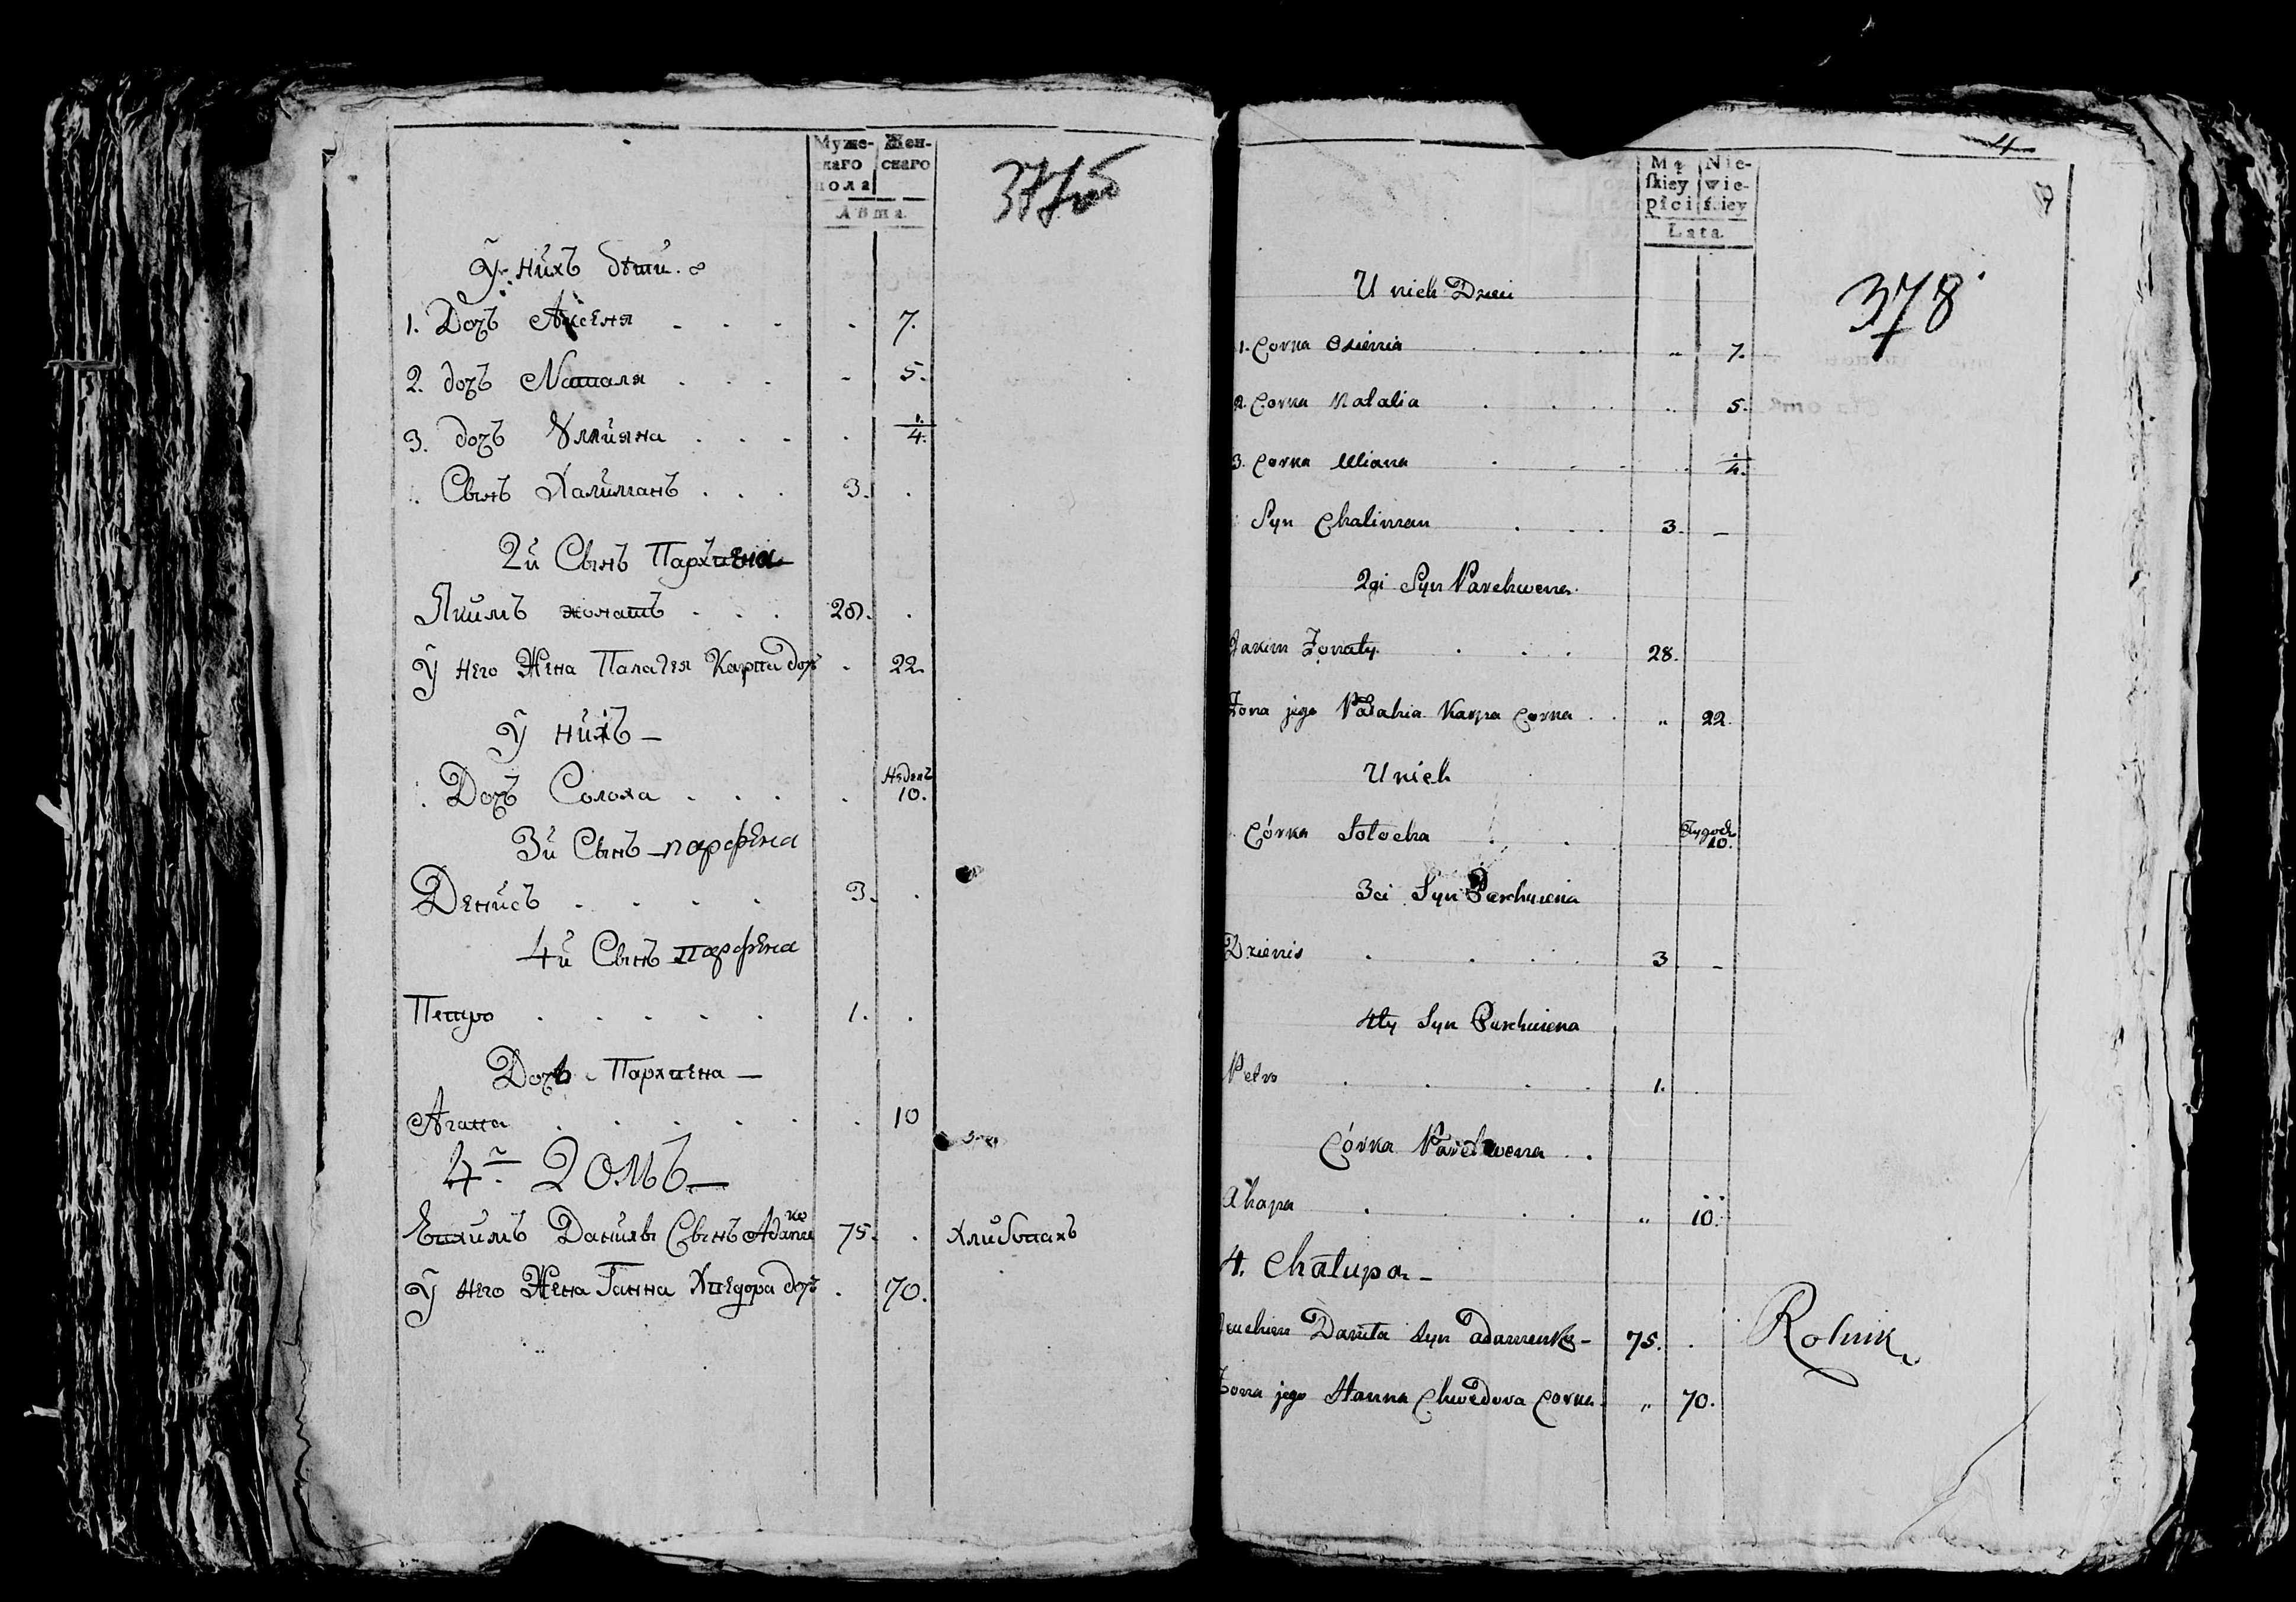 Муже-
скаго
пола
Жен-
скаго
Лѣта
377об
У нихъ дѣти.
1. Дочъ Аксеня 7.
2. дочъ Наталя 5.
3. дочъ Уллияна 1/4.
Сынъ Халиманъ 3.
2й Сынъ Пархвена
Якимъ жонатъ 28.
У него Жена Палагея Карпа дочъ 22.
У нихъ
Дочъ Солоха недель 10.
3й Сынъ парфена
Денисъ 3.
4й Сынъ парфена
Петро 1.
Дочъ Пархвена
Агапа 10
4й домъ
Евхимъ Данилы Сынъ Адаменко 75. Хлибопахъ
У него Жена Ганна Хведора дочъ 70.
4
Mę-
ſkiey
płci
Nie-
wie-
ſciey
Lata
378
U nich Dzieci
1. Corka Oxienia 7.
2. Corka Natalia 5.
3. Corka Uliana 1/4.
Syn Chaliman 3.
2gi Syn Parchwena
Jakim Żonaty 28.
Żona jego Pałahia Karpa Corka 22.
U nich
Córka Sołocha Tygod. 10.
3ci Syn Parchwiena
Dzienis 3
4ty Syn Parchwiena
Petro 1.
Córka Parchwena
Ahapa 10.
4. Chałupa
Jeuchim Daniła Syn Adamenko 75. Rolnik
Żona jego Hanna Chwedora Corka 70.